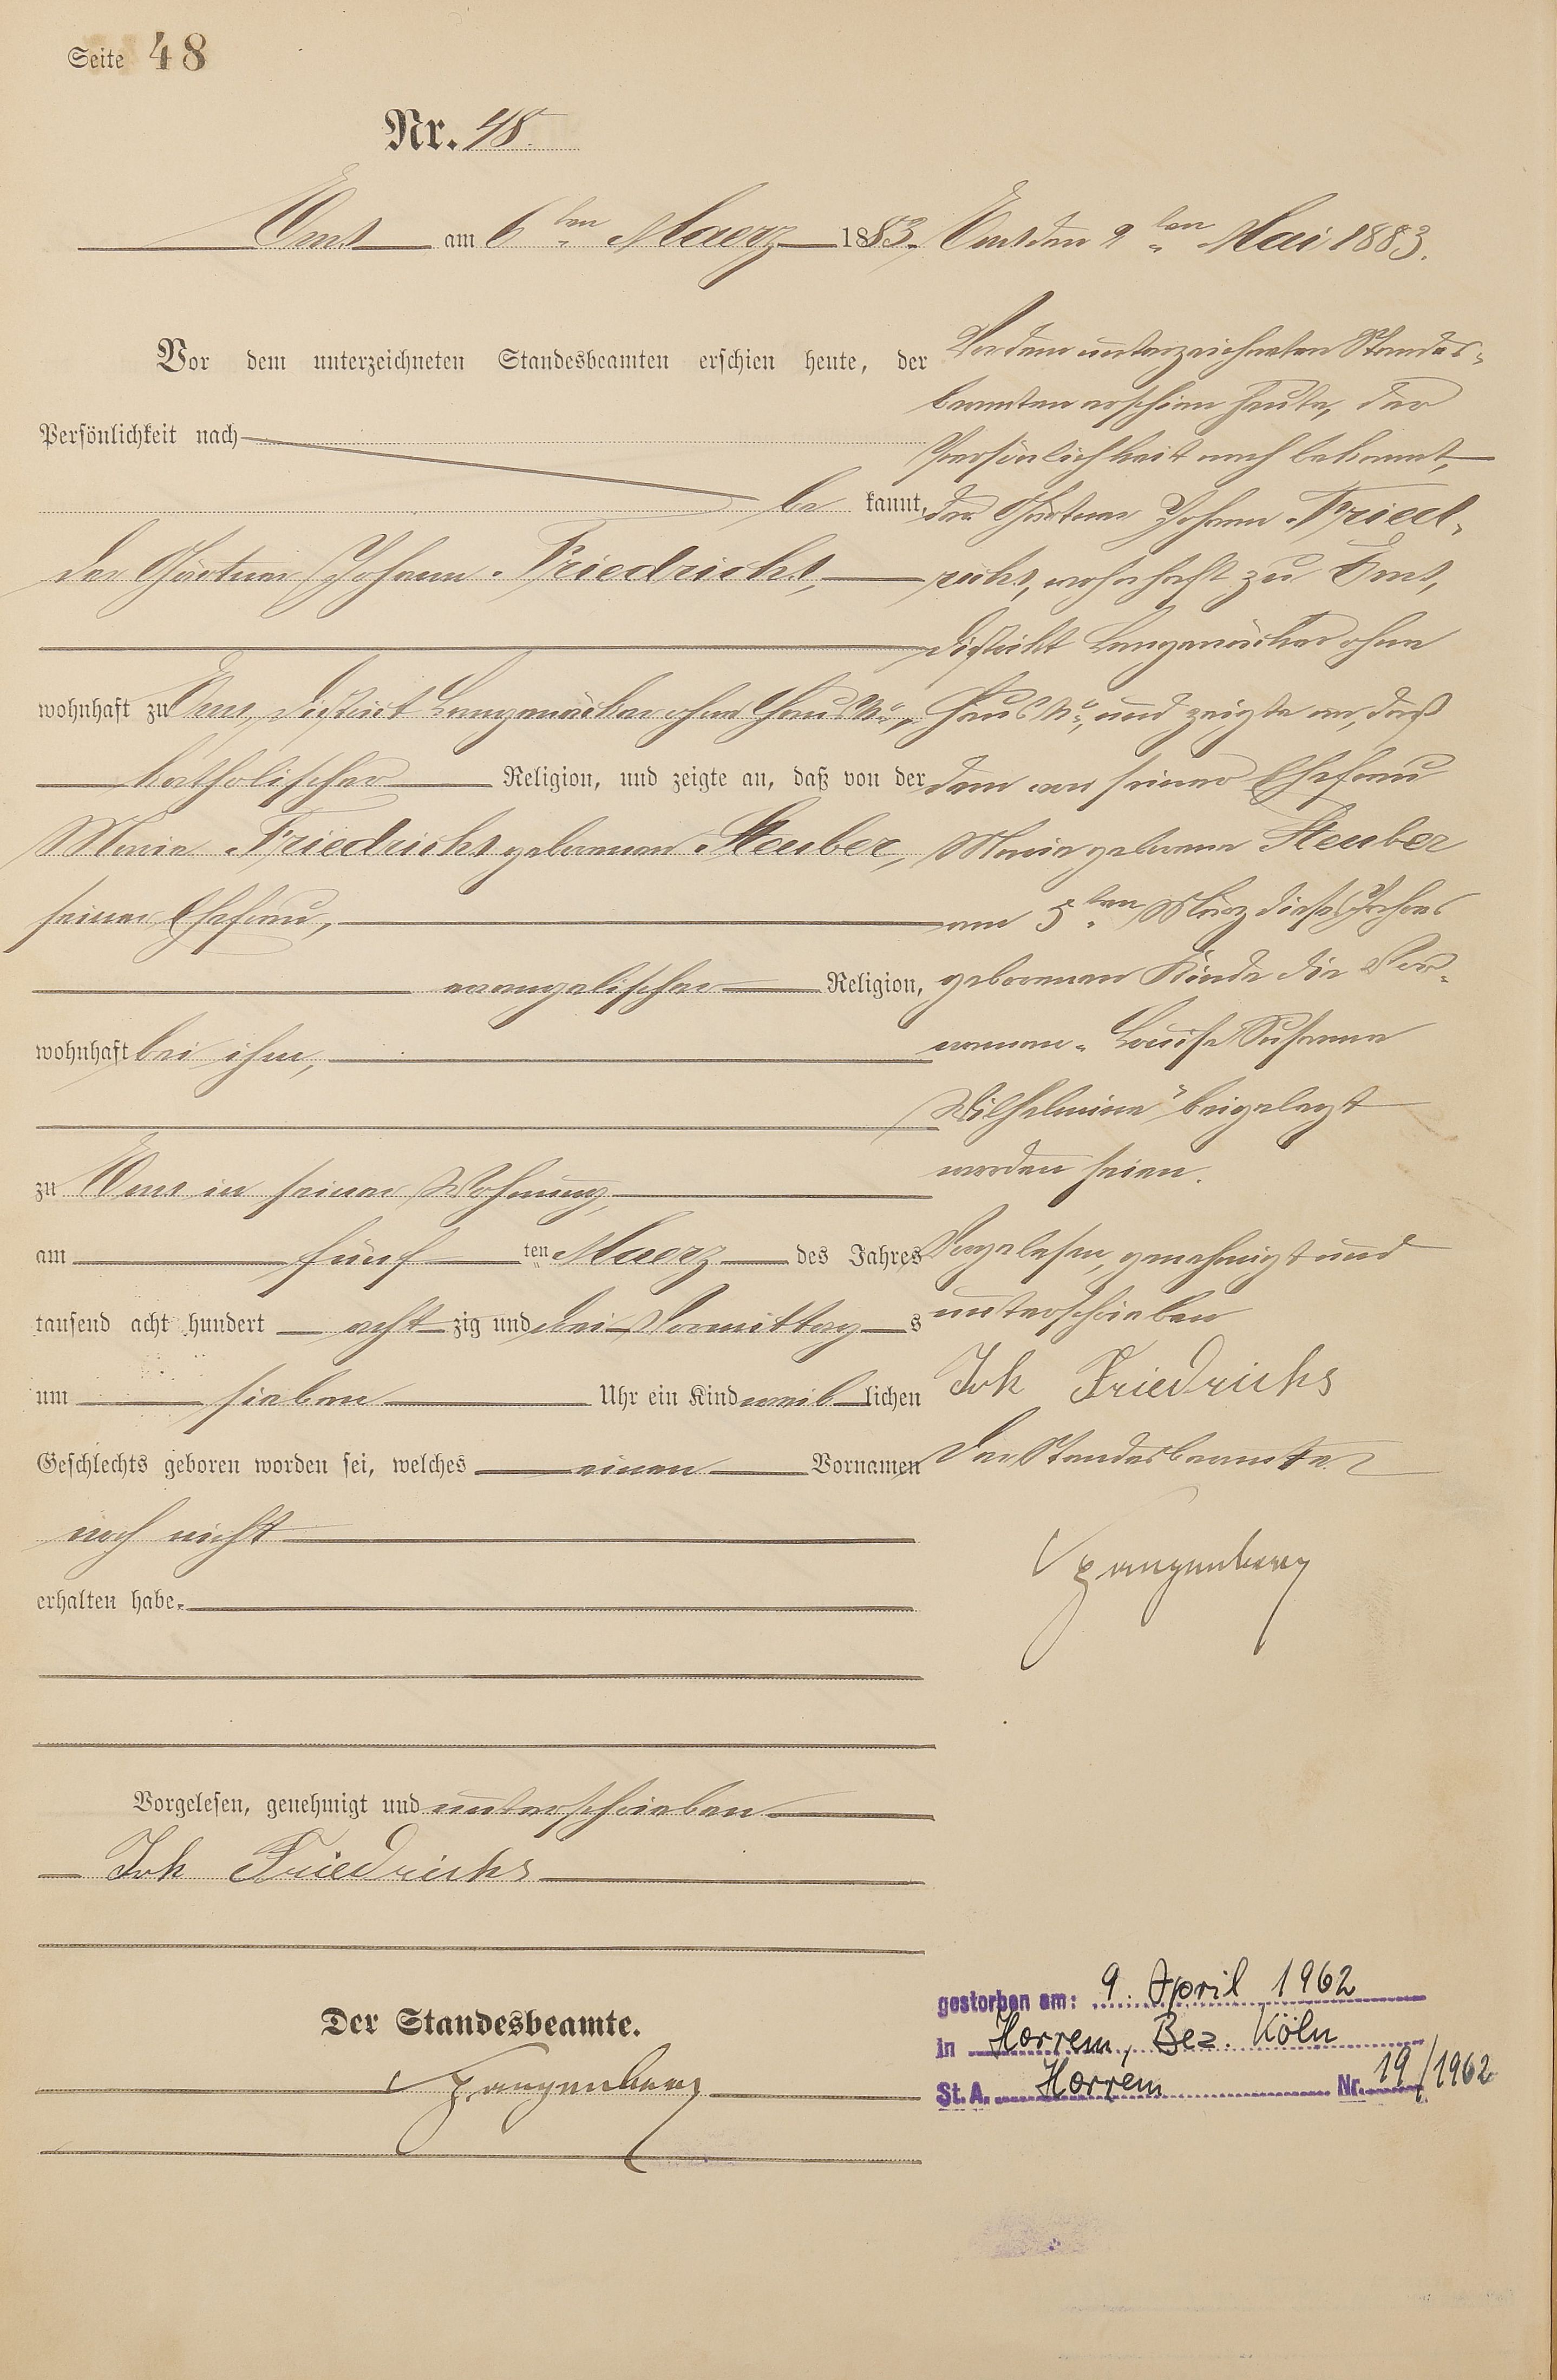 Seite 48
Nr. 48.
Ems am 6ten Maerz 1883.
Vor dem unterzeichneten Standesbeamten erschien heute, der
Persönlichkeit nach
be kannt,
der Gärtner Johann Friedrichs,
wohnhaft zu Ems, District Langenäcker ohne Haus No,
katholischer Religion, und zeigte an, daß von der
Marie Friedrichs geborenen Steuber,
seiner Ehefrau,
evangelischer Religion,
wohnhaft bei ihm,
zu Ems in seiner Wohnung,
am fünf ten Maerz des Jahres
tausend acht hundert acht zig und drei Vormittag s
um sieben Uhr ein Kind weib lichen
Geschlechts geboren worden sei, welches einen Vornamen
noch nicht
erhalten habe.
Vorgelesen, genehmigt und unterschrieben
Joh Friedrichs
Der Standesbeamte.
Ems den 9ten Mai 1883.
Vor dem unterzeichneten Standes-
beamten erschien heute, der
Persönlichkeit nach bekannt,
der Gärtner Johann Fried-
richs, wohnhaft zu Ems,
District Langenäcker ohne
Haus No, und zeigte an, daß
dem von seiner Ehefrau
Marie geborene Steuber
am 5ten März dieses Jahres
geborenen Kinde die Vor-
namen "Louise Susanna
Wilhelmine" beigelegt
worden seien.
Vorgelesen, genehmigt und
unterschrieben
Joh Friedrichs
Der Standesbeamte
gestorben am: 9. April 1962
in Horrem, Bez. Köln
St. A. Horrem Nr. 19/1962